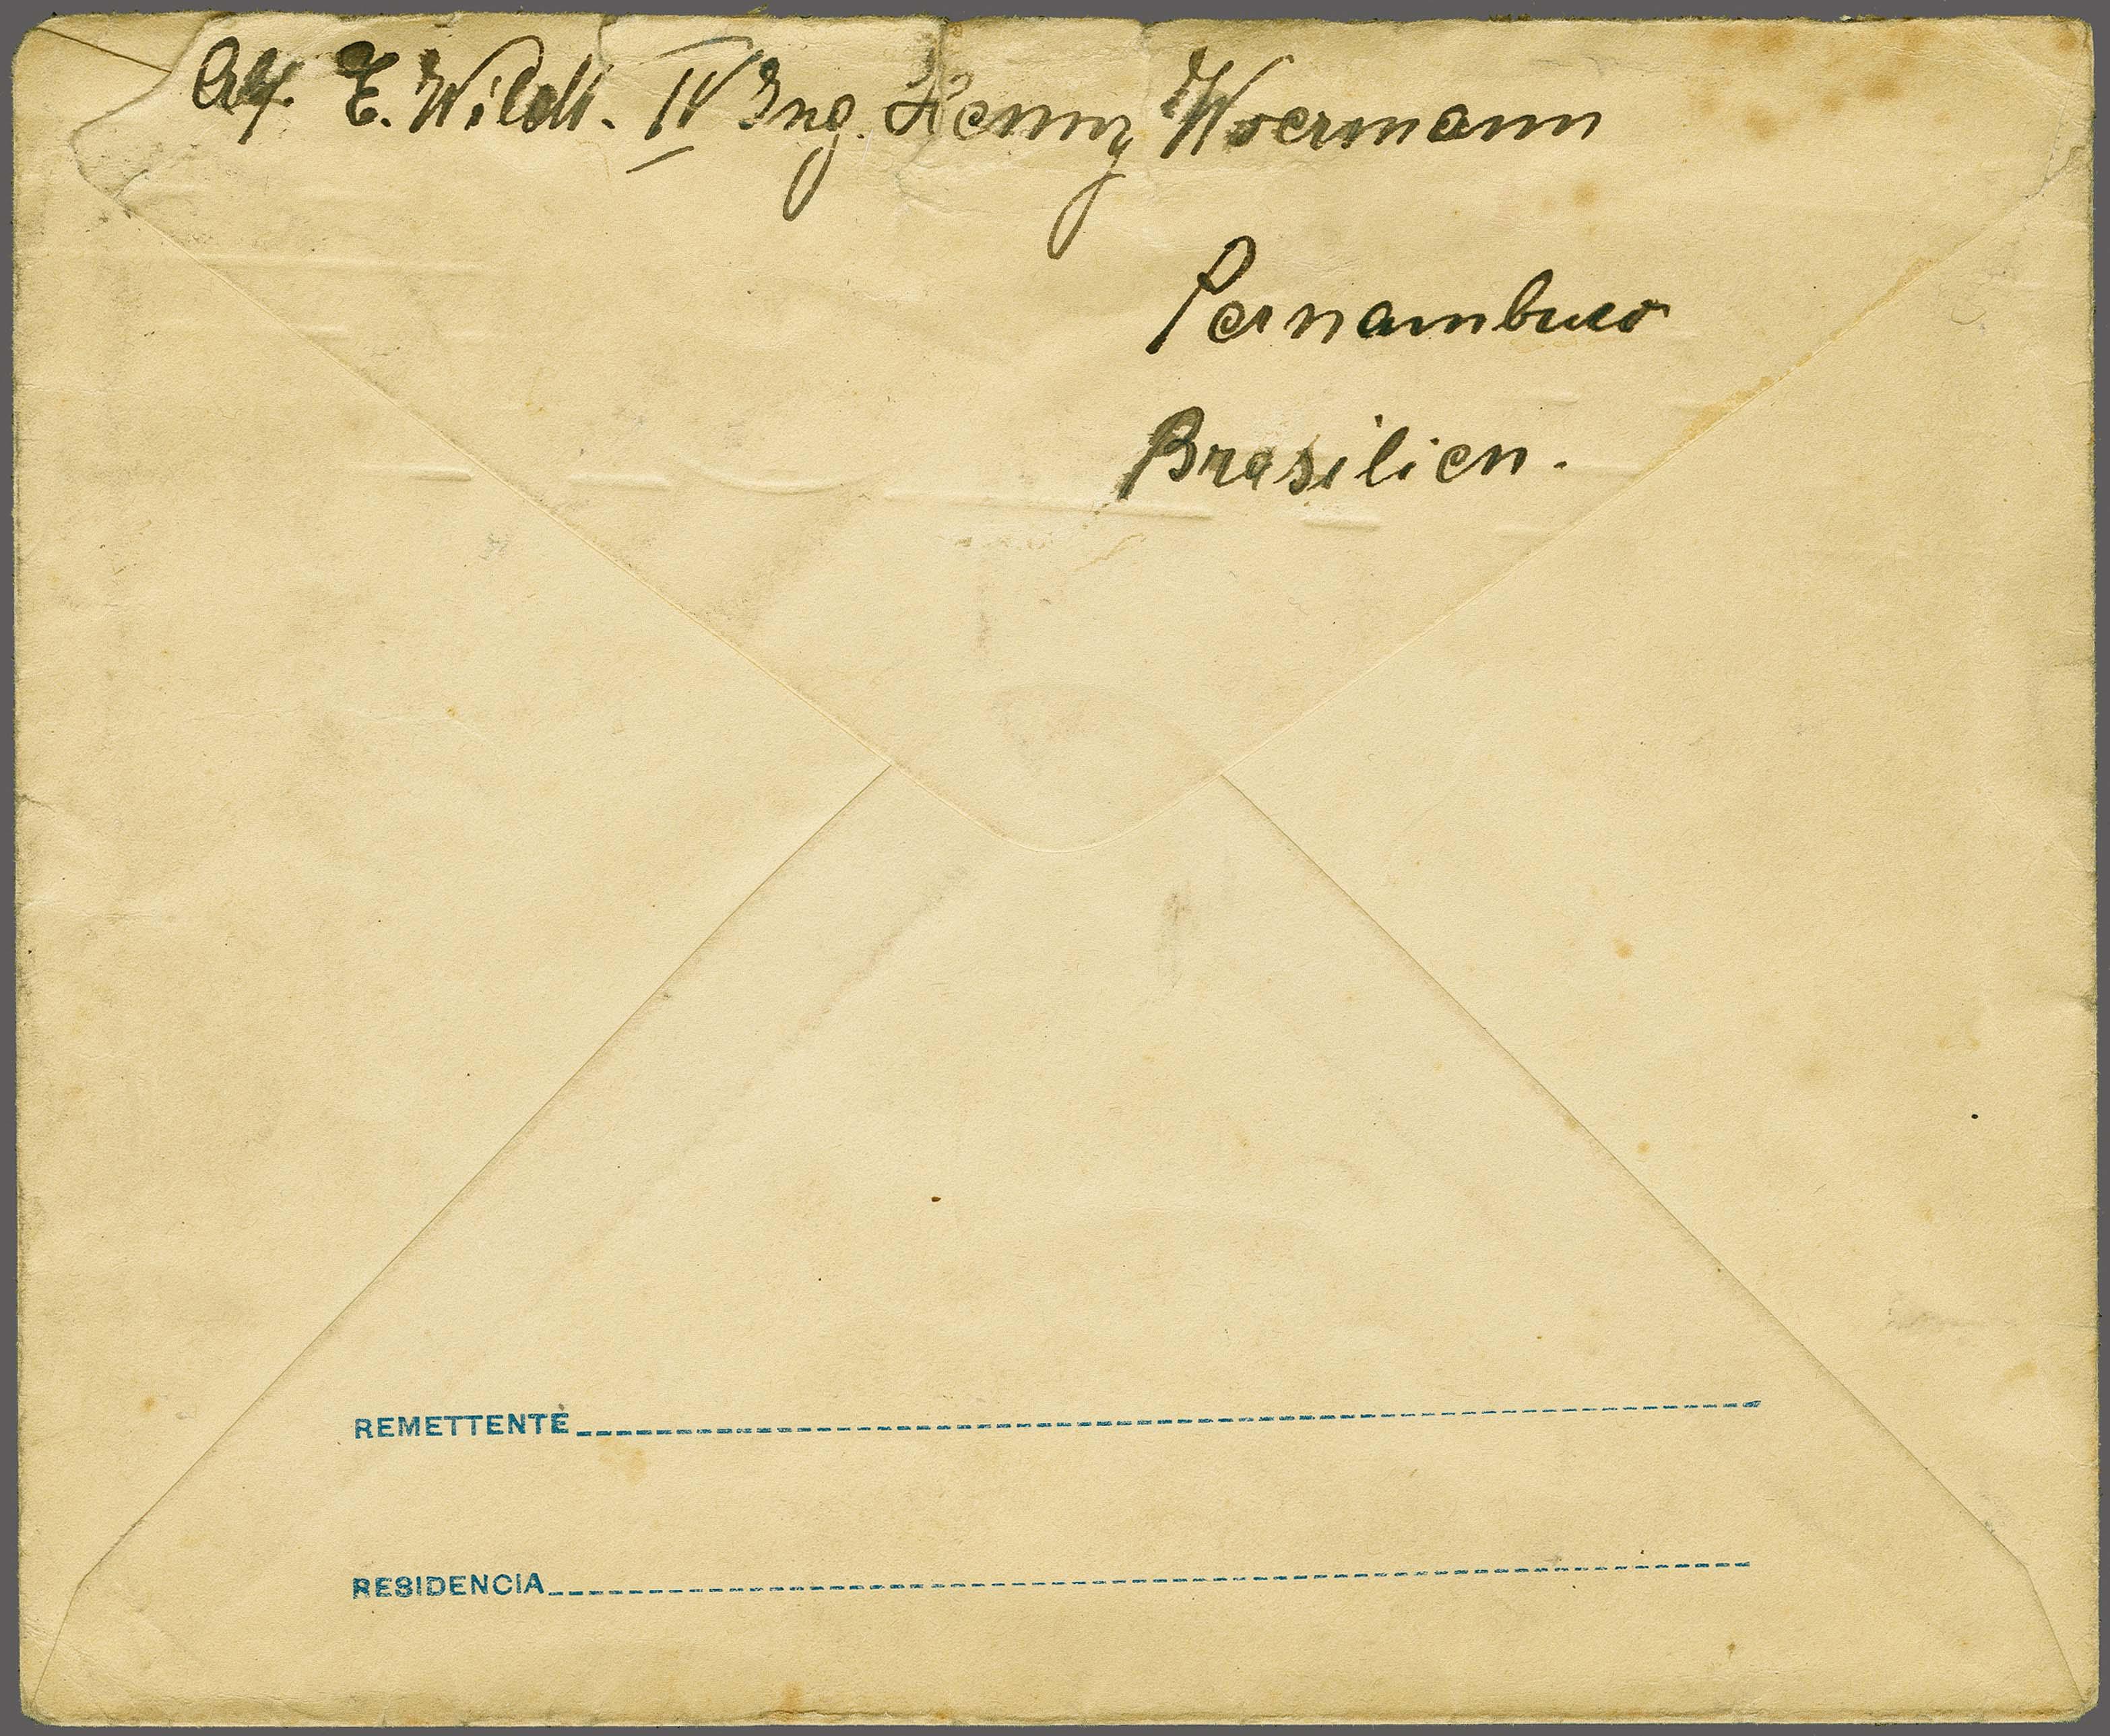 Abs. E. Wildt. IV Ing. Henny Woermann
Pernambuco
Brasilien.
REMETTENTE
RESIDENCIA